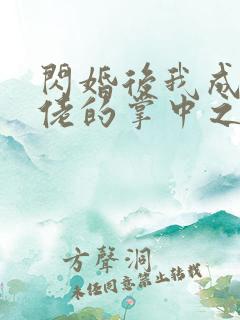 閃婚後我成
佬的掌中之
方聲洞
未經同意禁止轉載